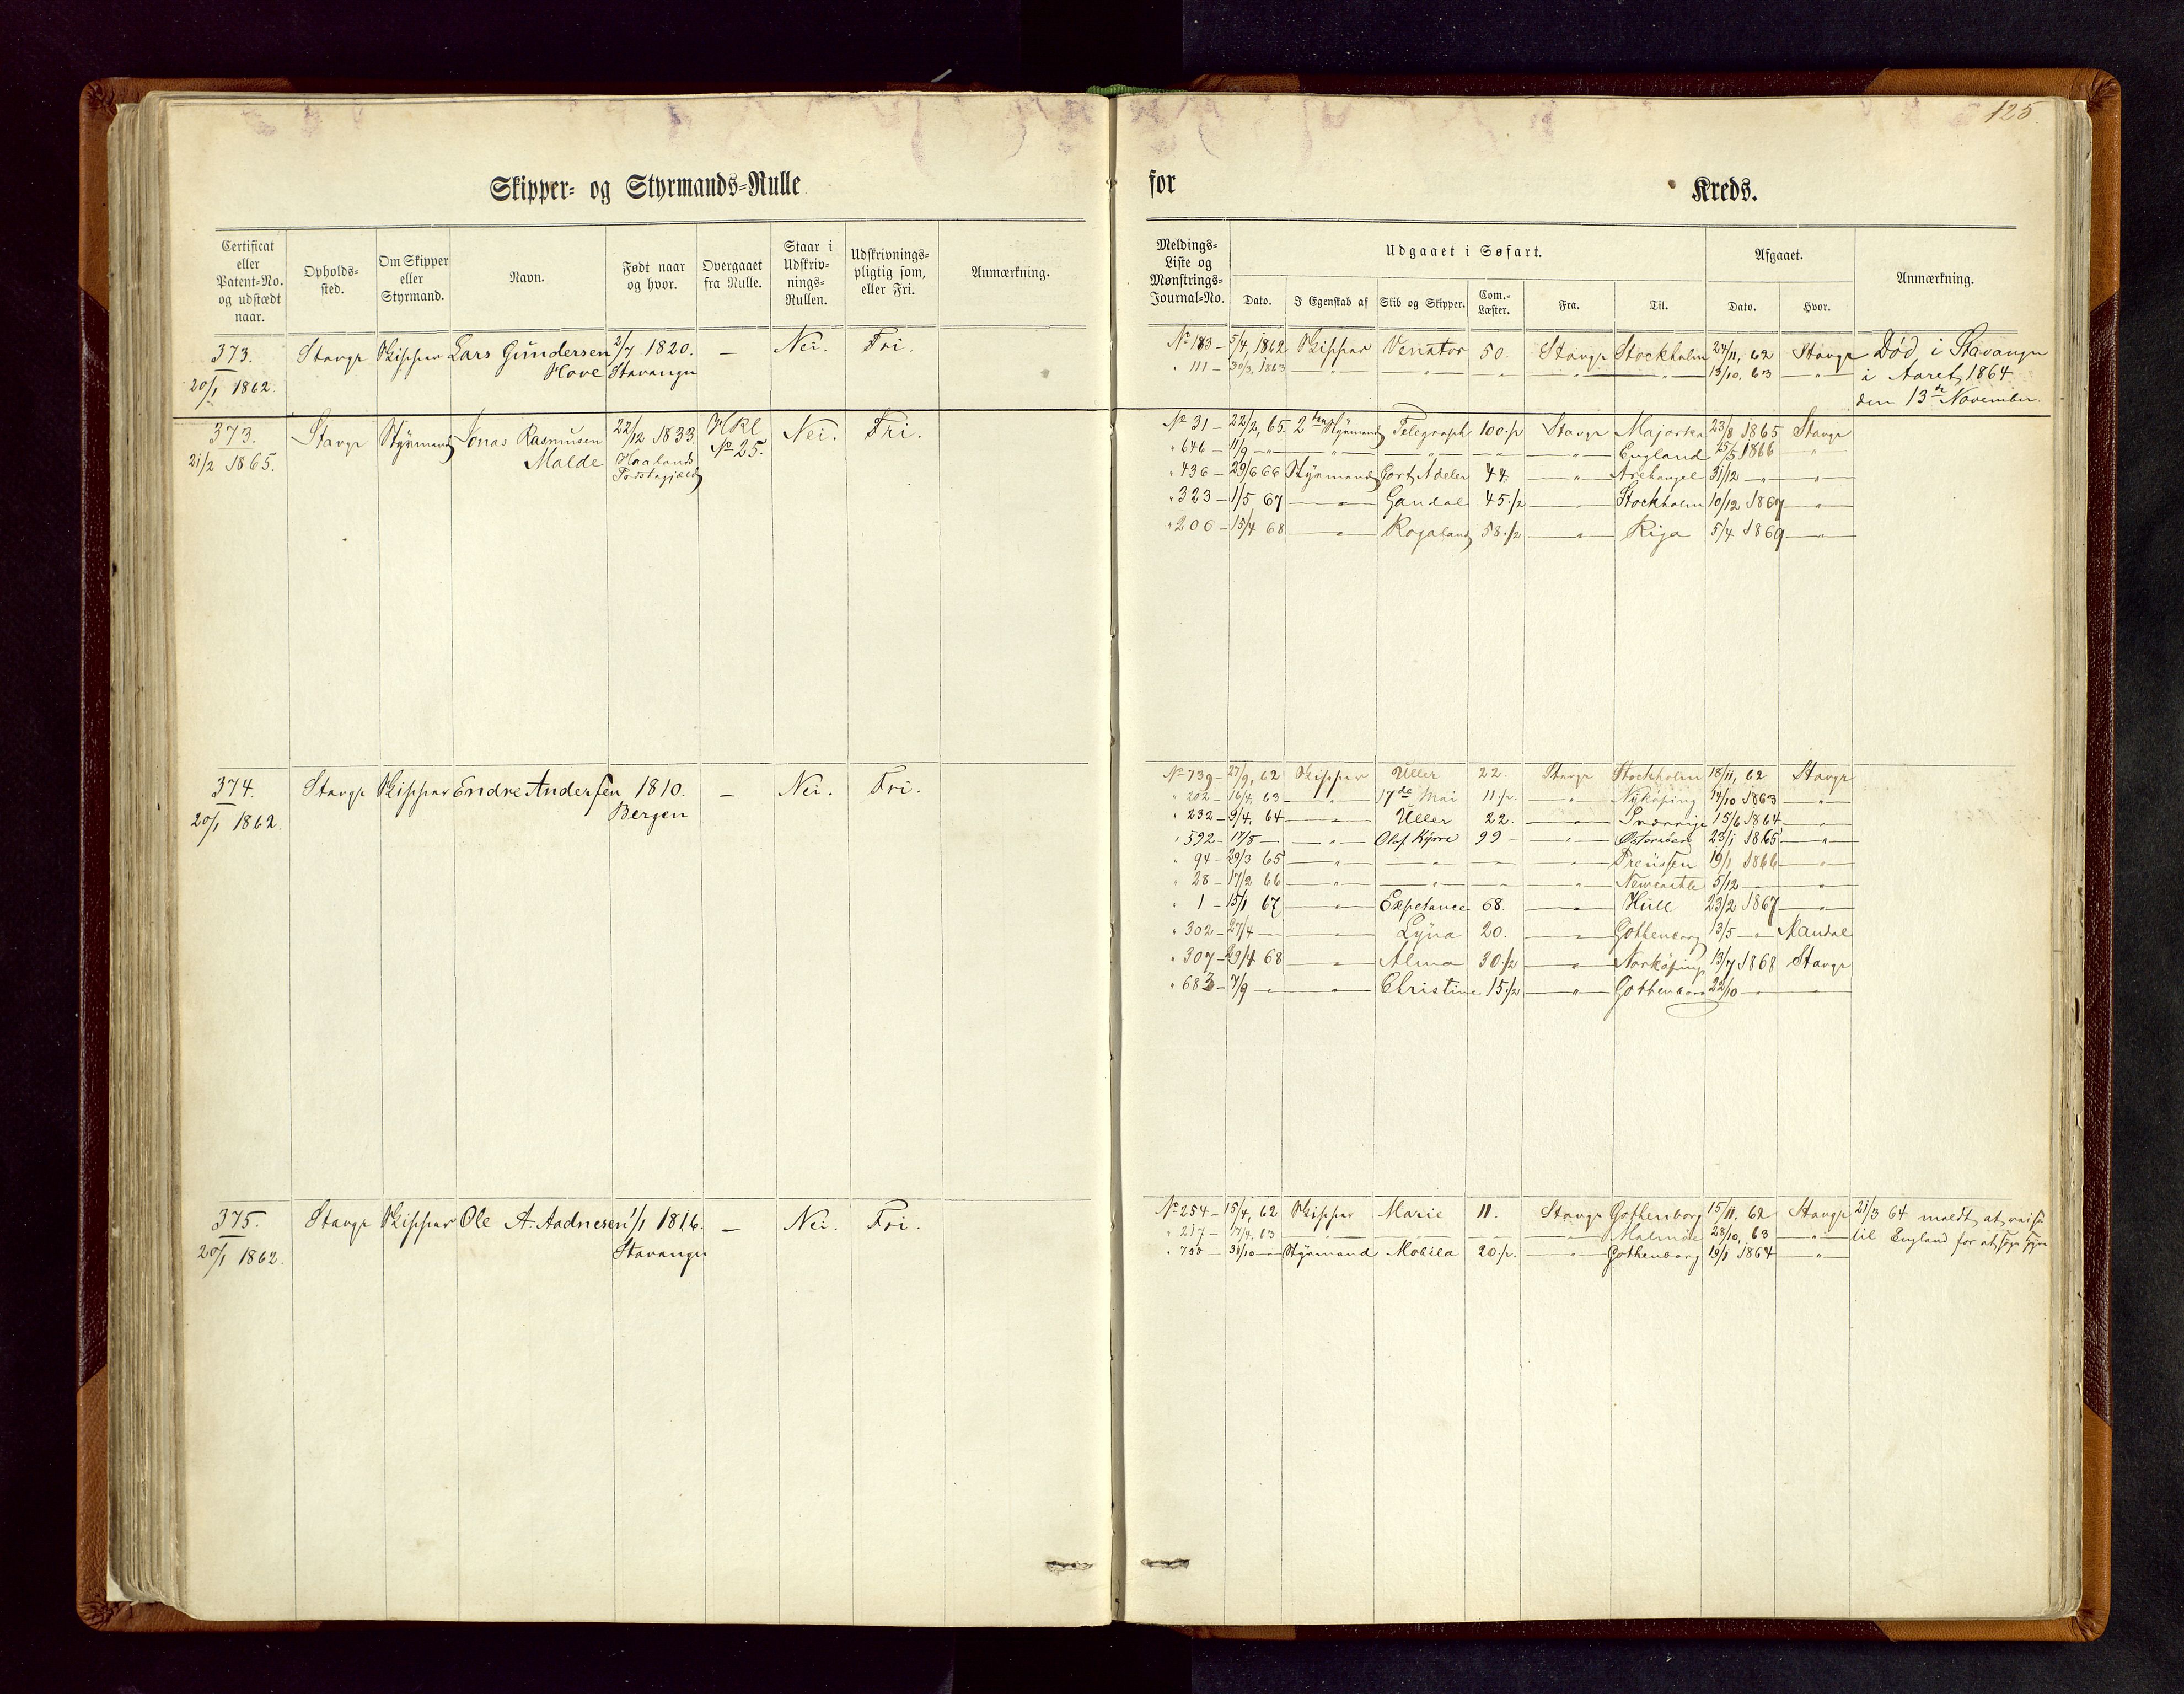 125.
Skipper- og Styrmands-Rulle
for
Kreds.
Certificat eller Patent-No. og udstædt naar.
Opholds-sted.
Om Skipper eller Styrmand.
Navn.
Født naar og hvor.
Overgaaet fra Rulle.
Staar i Udskriv-nings-Rullen.
Udskrivnings-pligtig som, eller Fri.
Anmærkning.
Meldings-Liste og Mønstrings-Journal-No.
Udgaaet i Søfart.
Dato.
I Egenskab af
Skib og Skipper.
Com.-Læster.
Fra.
Til.
Afgaaet.
Dato.
Hvor.
Anmærkning.
373. Stavgr Skipper Lars Gundersen 2/7 1820. — Nei. Fri.
20/1 1862. Hove Stavanger
No 183 — 5/4, 1862 Skipper Venator 50. Stavgr Stockholm 24/11, 62 Stavgr Død i Stavanger
" 111 — 30/3, 1863 — " — — " — — " — — " — — " — 13/10, 63 — " — i Aaret 1864
den 13de November.
373. Stavgr Styrmand Jonas Rasmusen 22/12 1833. HRl Nei. Fri.
21/2 1865. Malde Haalands No 25.
Præstegjæld
No 31 — 22/2, 65. 2den Styrmand Telegraph 100 1/2 Stavgr Majorka 23/8 1865 Stavgr
" 646 — 11/9 — " — — " — — " — — " — — " — England 15/5 1866 — " —
" 436 — 29/6 66 Styrmand Cort Adeler 44. — " — Archangel 31/12 — " — — " —
" 323 — 1/5 67 — " — Gandal 45 1/2 — " — Stockholm 10/12 1867 — " —
" 206 — 15/4 68 — " — Rogaland 58 1/2 — " — Riga 5/4 1869 — " —
374. Stavgr Skipper Endre Andersen 1810. — Nei. Fri.
20/1 1862. Bergen
No 739 — 27/9, 62 Skipper Uller 22. Stavgr Stockholm 18/11, 62 Stavgr
" 202 — 16/4, 63 — " — 17de Mai 11 1/2. — " — Nyköping 14/10 1863 — " —
" 232 — 9/4, 64 — " — Uller 22. — " — Sverrige 15/6 1864 — " —
" 592 — 17/8 — — " — Olaf Kyrre 99 — — " — Østersøen 23/1 1865 — " —
" 94 — 29/3 65 — " — — " — — " — — " — Preussen 19/1 1866 — " —
" 28 — 17/2 66 — " — — " — — " — — " — Newcastle 5/12 — — " —
" 1 — 15/1 67 — " — Expetance 68. — " — Hull 23/2 1867 — " —
" 302 — 27/4 — — " — Lyna 20. — " — Gothenborg 13/5 — " — Mandal
" 307 — 29/4 68 — " — Alma 30 1/2 — " — Norköping 13/7 1868 Stavgr
" 683 — 7/9 — " — — " — Christine 15 1/2 — " — Gothenborg 22/10 — " — — " —
375. Stavgr Skipper Ole A. Aadnesen 1/1 1816. — Nei. Fri.
20/1 1862. Stavanger
No 254 — 15/4, 62 Skipper Marie 11. Stavgr Gothenborg 15/11, 62 Stavgr 21/3 64 meldt at reise
" 217 — 17/4, 63 — " — — " — — " — — " — Malmöe 28/10, 63 — " — til England for at søge Hyre
" 755 — 31/10 — " — Styrmand Mobila 20 1/2. — " — Gothenborg 19/1 1864 — " —